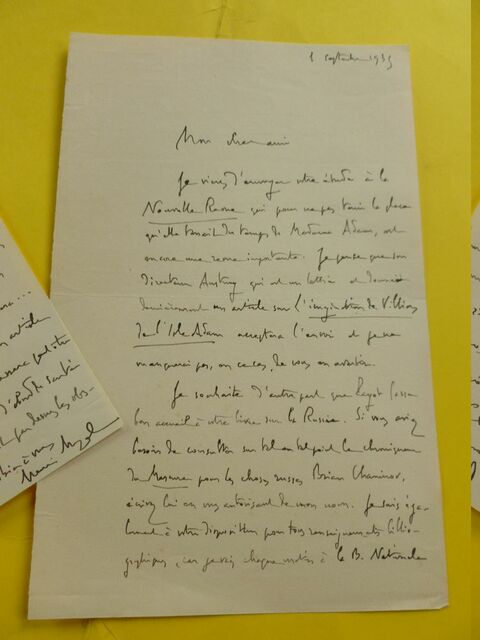 1 septembre 1935
Mon cher ami
Je viens d'envoyer votre étude à la
Nouvelle Revue qui pour ne pas tenir la place
qu'elle tenait du temps de Madame Adam, est
encore une revue importante. Je pense que son
directeur Austruy qui est un lettré et donnait
dernièrement un article sur l'imagination de Villiers
de l'Isle Adam acceptera l'envoi et je ne
manquerai pas, en ce cas, de vous en avertir.
Je souhaite d'autre part que fasse
bon accueil à votre livre sur la Russie. Si vous aviez
besoin de consulter sur tel ou tel point le chroniqueur
du Mercure pour les choses russes Brian Chaninov,
écrivez lui en vous autorisant de mon nom. Je suis éga-
lement à votre disposition pour tous renseignements biblio-
graphiques, car je vais chaque matin à la B. Nationale
article
d'abord